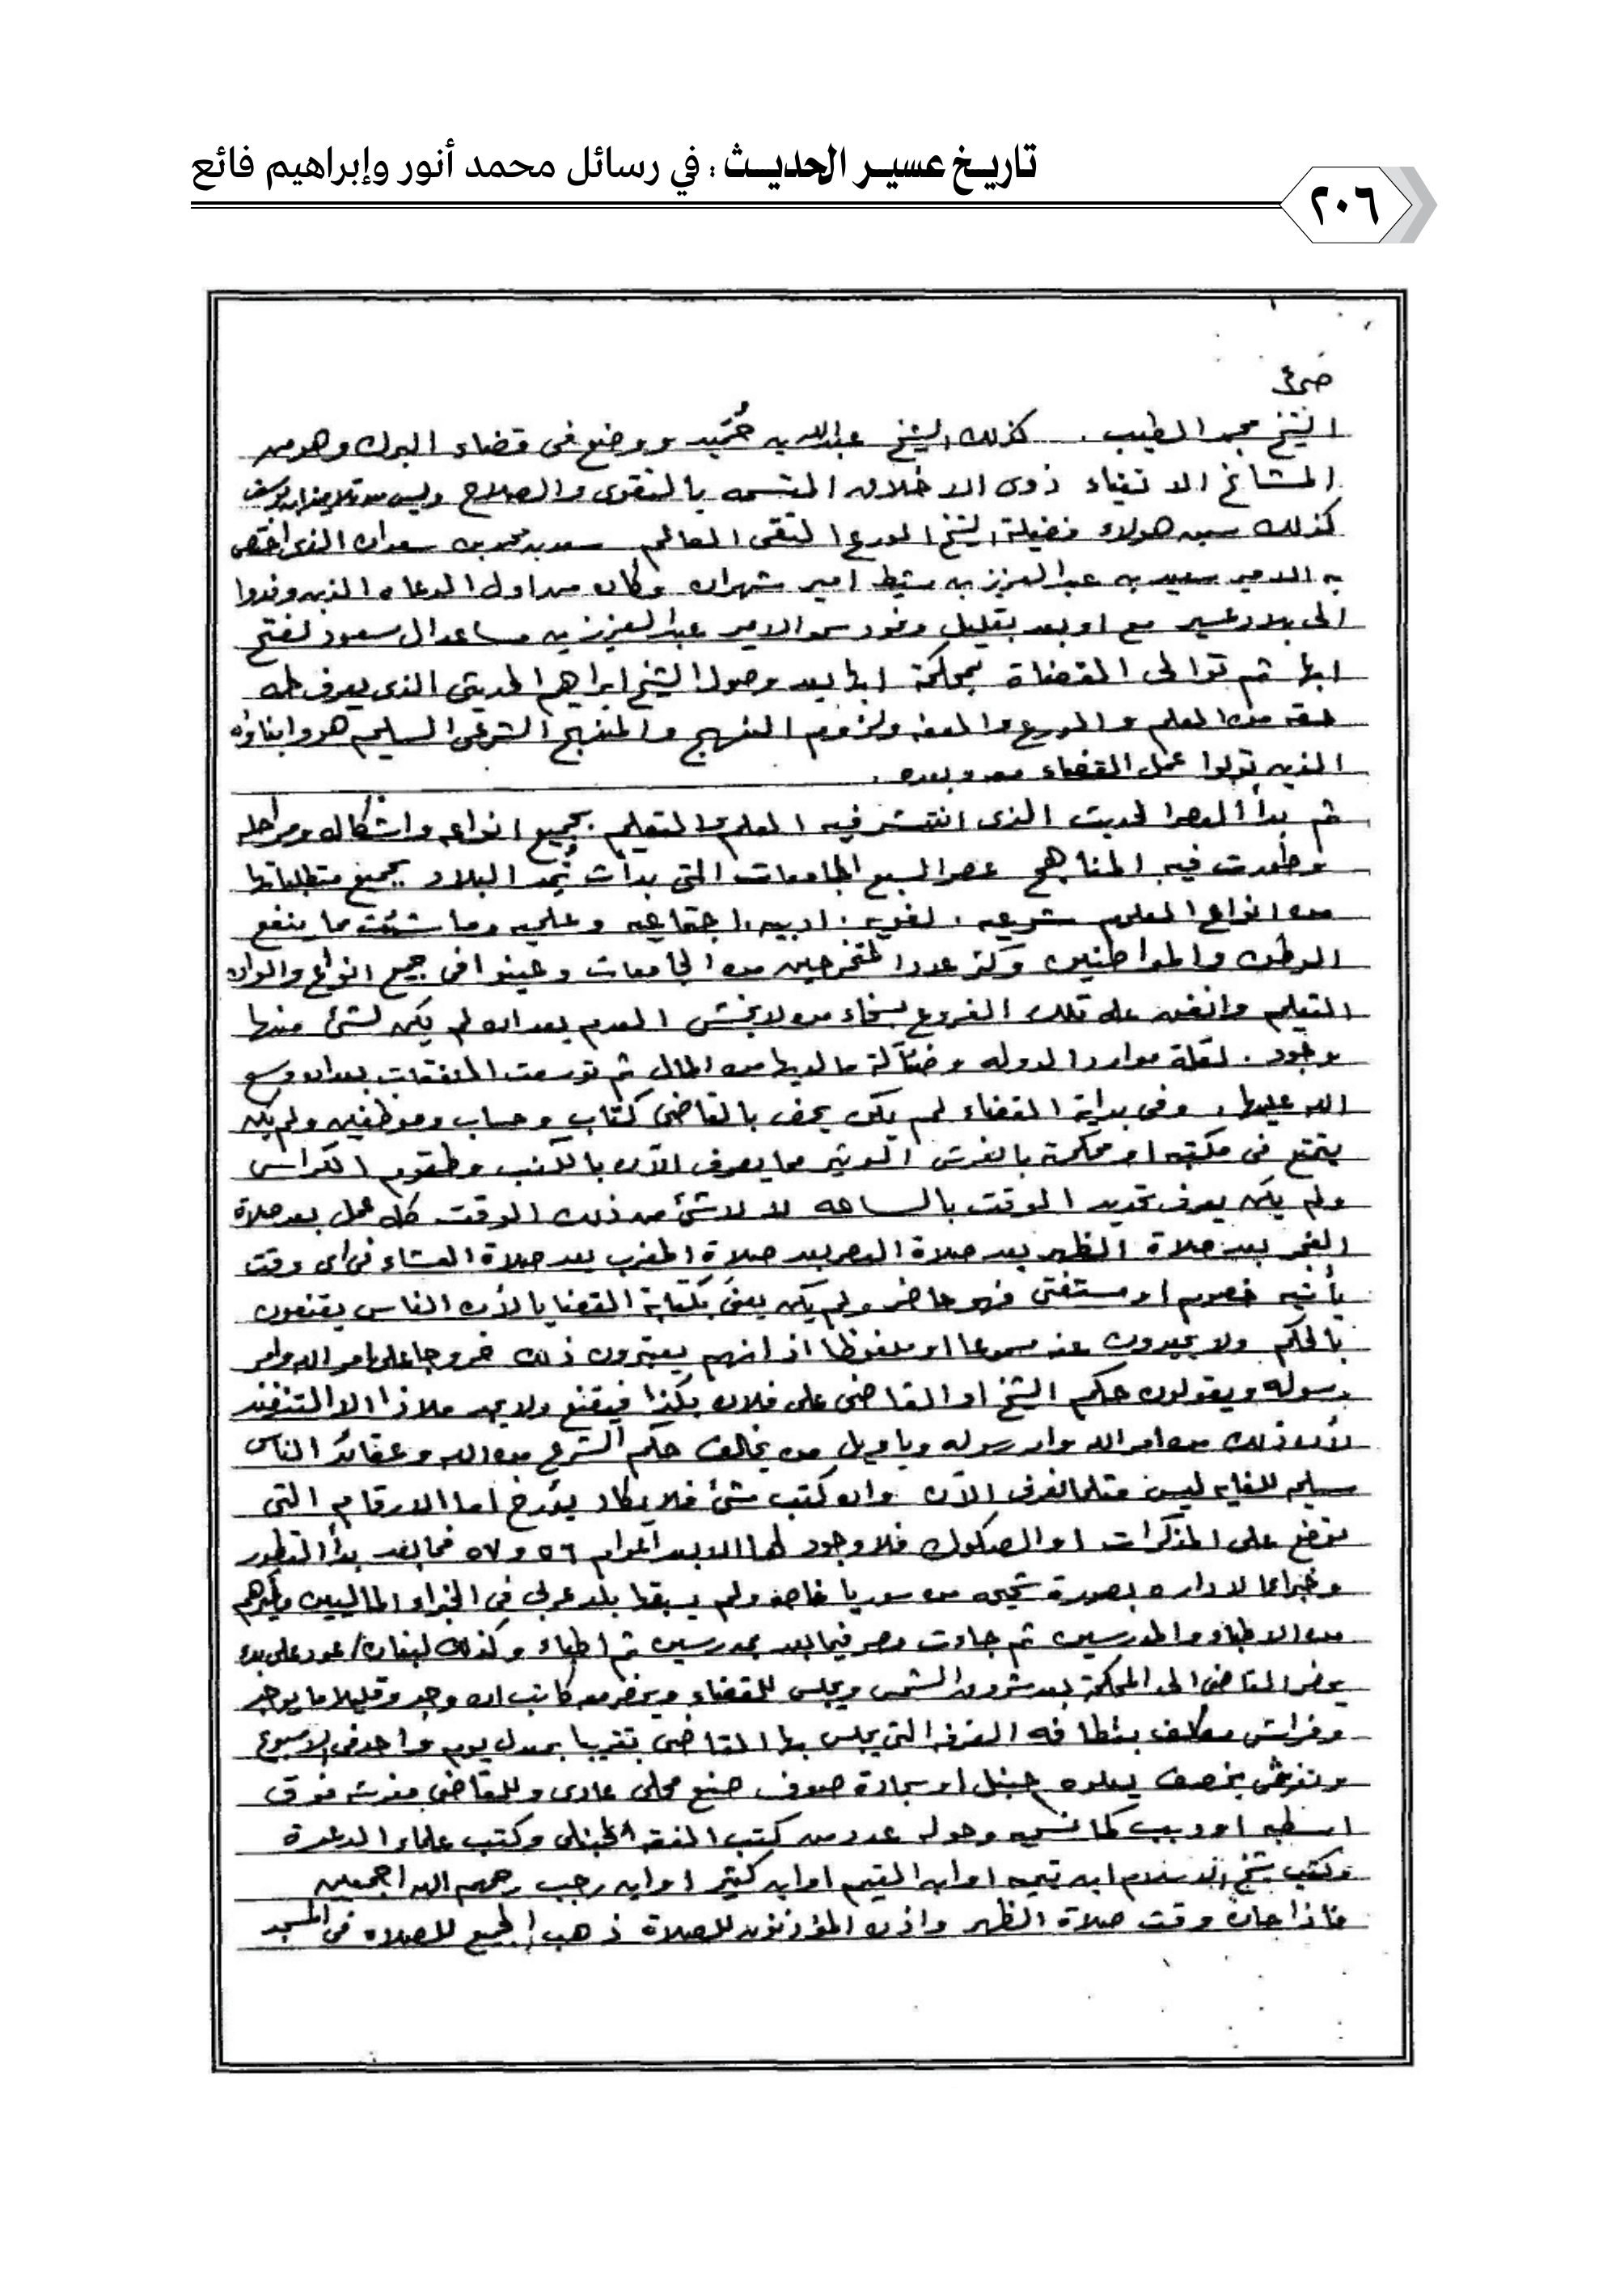 تاريخ عسير الحديث : في رسائل محمد أنور وإبراهيم فائع
٢٠٦
ص٤
الشيخ محمد الطيب . كذلك الشيخ عبدالله بن حُمَيد ووضع في قضاء البرك وهو من
المشائخ الاتقياء ذوى الاخلاق المتسمه بالتقوى والصلاح وليس من تلاميذ ابويوسف
كذلك سبق هولاء فضيلة الشيخ الورع التقى العالم سعد بن محمد بن سعدان الذى اختص
به الامير سعيد بن عبدالعزيز بن مشيط امير شهران وكان من اول الدعاه الذين وفدوا
الى بلاد عسير مع او بعد بقليل وفود سمو الامير عبدالعزيز بن مساعد ال سعود لفتح
ابها ثم توالى القضاة بمحكمة ابها بعد وصول الشيخ ابراهيم الحديثى الذى يعرف كله
حقه من العلم والورع والعفه ولزوم النهج والمنهج الشرعى السليم هو وابناؤه
الذين تولوا عمل القضاء معه وبعده .
ثم بدأ العصر الحديث الذى انتشر فيه العلم والتعليم بجميع انواعه واشكاله ومراحله
وطورت فيه المناهج عصر السبع الجامعات التى بدأت تُمد البلاد بجميع متطلباتها
من انواع العلوم شرعيه . لغويه . ادبيه . اجتماعيه وعلميه وما شئت مما ينفع
الوطن والمواطنين وكثر عدد المتخرجين من الجامعات وعينوا فى جميع انواع والوان
التعليم وانفق على تلك الفروع بسخاء من لا يخشى العدم بعد ان لم يكن لشئ منها
وجود . لقلة موارد الدوله وضئآلة ما لديها من المال ثم توسعت النفقات بعد ان وسع
الله عليها . وفى بداية القضاء لم يكن يحف بالقاضى كتاب وحساب وموظفين ولم يكن
يتمتع فى مكتبه او محكمة بالفرش الوثير مما يعرف الآن بالكنب وطقوم الكراسى
ولم يكن يعرف تحديد الوقت بالساعه لا لا شئ من ذلك الوقت كله عمل بعد صلاة
الفجر بعد صلاة الظهر بعد صلاة العصر بعد صلاة المغرب بعد صلاة العشاء فى اى وقت
يأتيه خصوم او مستفتى فهو حاضر ولم يكن يعنى بكتابة القضايا لأن الناس يقتنعون
بالحكم ولا يحيدون عنه مسموعا او ملفوظا اذ انهم يعتبرون ذلك خروجا على امر الله وامر
رسوله ويقولون حكم الشيخ او القاضى على فلان بكذا فيقتنع ولا يجد ملاذا الا التنفيذ
لأن ذلك من امر الله وامر رسوله وياويل من يخالف حكم الشرع من الله وعقائد الناس
سليمه للغايه ليس مثلما نعرف الآن وان كتب شئ فلا يكاد يؤرخ اما الارقام التى
توضع على المذكرات او الصكوك فلا وجود لها الا بعد اعوام ٥٦ و ٥٧ فما بعد بدأ التطور
وخبراء الاداره بصورة تجئ من سوريا خاصه ولم يسبقها بلد عربى فى الخبراء الماليين وغيرهم
من الاطباء والمدرسين ثم جاءت مصر فيما بعد بمدرسين ثم اطباء وكذلك لبنان / عود على بدء
يحضر القاضى الى المحكمة بعد شروق الشمس ويجلس للقضاء ويحضر معه كاتب ان وجد وقليلا ما يوجد
وفراش مكلف بنظافه الغرفه التى يجلس بها القاضى تقريبا بمعدل يوم واحد فى الاسبوع
وتفرش بخصف يعلوه حنبل او سجادة صوف صنع محلى عادى وللقاضى مفرش فوق
وحوله عدد من كتب الفقه الحنبلى وكتب علماء الدعوة
وكتب شيخ الاسلام ابن تيميه او ابن القيم او ابن كثير او ابن رجب رحمهم الله اجمعين
فاذا حان وقت صلاة الظهر واذن المؤذنون للصلاة ذهب الجميع للصلاه فى المسجد